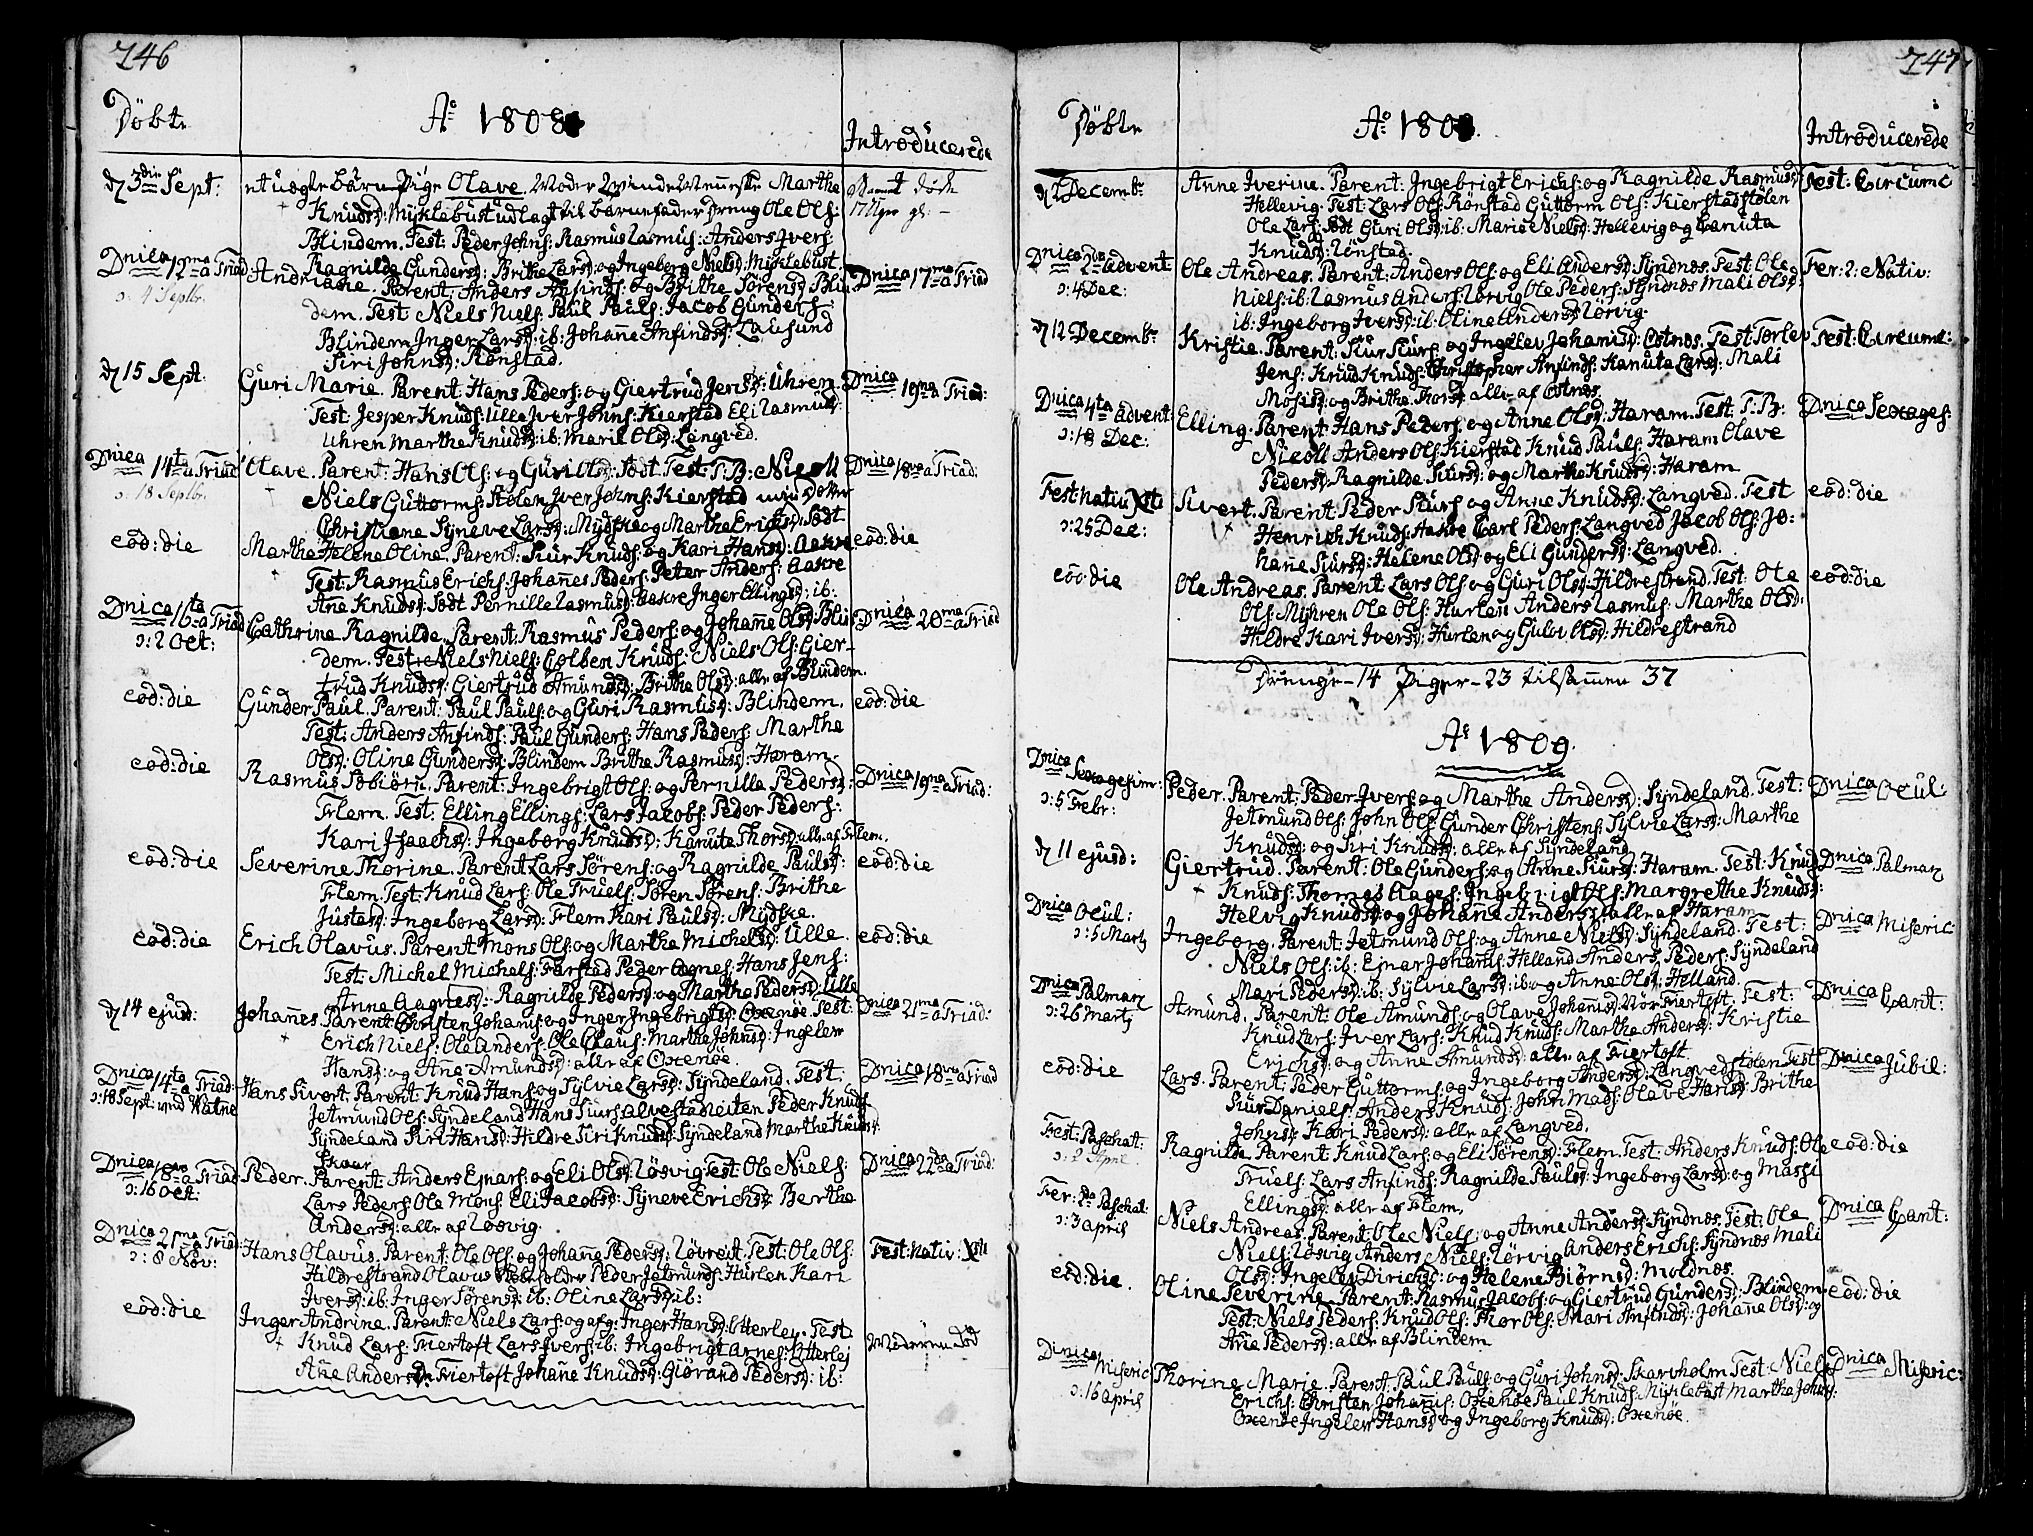 246
Döbte
Ao 1808
Introducerede
d 3die Sept:
Olave. Moder Marthe
Knudsd: Myklebust udlagt til barnefader Dreng Ole Ols:
Blindem. Test: Peder Johns: Rasmus Rasmus: Anders Ivers:
Ragnilde Gundersd: Brithe Larsd: og Ingeborg Nielsd: Myklebust.
Dnica 12ma a Triad
ɔ: 4 Septbr:
Andriane. Parent: Anders Anfinds: og Brithe Sörensd: Blin-
dem. Test Niels Niels: Paul Pauls: Jacob Gunders:
Blindem Inger Larsd: ib: Johanne Anfindsd: Lausund
Siri Johnsd: Rönstad.
Dnica 17ma a Triad
d 15 Sept:
Guri Marie. Parent: Hans Peders: og Giertrud Jensd: Uhren.
Test. Jesper Knuds: Ulle Iver Johns: Kierstad Eli Rasmusd:
Uhren Marthe Knudsd: ib: Marie Olsd: Langved.
Dnica 19na a Triad:
Dnica 14ta a Triad
ɔ: 18 Septbr:
Olave. Parent: Hans Ols: og Guri Olsd: Södt. Test: S: B: Nicoll
Niels Guttorms: Stölen Iver Johns: Kierstad
Christiane Syneve Larsd: Mydske og Marthe Erichsd: Södt
Dnica 18va a Triad:
eod: die
Marthe Helene Oline. Parent: Siur Knuds: og Kari Hansd: Aakre.
Test: Rasmus Erichs: Johannes Peders: Peter Anders: Aakre
Ane Knudsd: Södt Pernille Rasmusd: Aakre Inger Ellingsd: ib:
eod: die
Dnica 16ta a Triad
ɔ: 2 Oct:
Cathrine Ragnilde. Parent: Rasmus Peders: og Johanne Olsd: Blin-
dem. Test: Niels Niels: Colben Knuds: Niels Ols: Gier-
trud Knudsd: Giertrud Amundsd: Brithe Olsd: alle af Blindem.
Dnica 20ma a Triad
eod: die
Gunder Paul. Parent: Paul Pauls: og Guri Rasmusd: Blindem.
Test: Anders Anfinds: Paul Gunders: Hans Peders: Marthe
Olsd: Oline Gundersd: Blindem Brithe Rasmusd: Haram.
eod: die
eod: die
Rasmus Esbiörn. Parent: Ingebrigt Ols: og Pernilla Pedersd:
Flem. Test: Elling Ellings: Lars Jacobs: Peder Peders:
Kari Isaachsd: Ingeborg Knudsd: Kanuta Thorsd: alle af Flem.
Dnica 19na a Triad:
eod: die
Severine Thorine. Parent Lars Sörens: og Ragnilde Paulsd:
Flem. Test: Knud Lars: Ole Truels: Sören Sörens: Brithe
Justad: Ingeborg Larsd: Flem Kari Paulsd: Mydske.
eod: die
eod: die
Erich Olavus. Parent Mons Ols: og Marthe Michelsd: Ulle.
Test: Michel Michels: Farstad Peder Agnes: Hans Jens:
Anne Aagnesd: Ragnilde Pedersd: og Marthe Pedersd: Ulle
eod: die
d 14 ejusd:
Johannes. Parent: Christen Johans: og Inger Ingebrigtsd: Oxenöe Test:
Erich Niels: Ole Anders: Ole Olaus: Marthe Johnsd: Ingelev
Hansd: og Ane Amundsd: alle af Oxenöe.
Dnica 21ma a Triad:
Dnica 14ta a Triad:
ɔ: 18 Sept: und Vatne
Hans Sivert. Parent: Knud Hans: og Sylvie Larsd: Syndeland. Test:
Jetmund Ols: Syndeland Hans Siurs: Alvestadleiten Peder Knuds:
Syndeland Siri Hansd: Hildre Siri Knudsd: Syndeland Marthe Knudsd:
Skaar
Dnica 18va a Triad
Dnica 18va a Triad
ɔ: 16 Oct:
Peder. Parent: Anders Ejnars: og Eli Olsd: Lösvig. Test: Ole Niels:
Lars Peders: Ole Mons: Eli Jacobsd: Syneve Erichsd: Berthe
Andersd: alle af Lösvig.
Dnica 22da a Triad:
Dnica 21ma a Triad:
ɔ: 8 Nov:
Hans Olavus. Parent: Ole Ols: og Johane Pedersd: Lövreit. Test: Ole Ols:
Hildrestrand Olavus Peder Jetmunds: Hurlen Kari
Iversd: ib: Inger Sörensd: ib: Oline Larsd: ib:
Fest: Nativ: Xsti
eod: die
Inger Andrine. Parent: Niels Lars: og afg: Inger Hansd: Otterlej. Test:
Knud Lars: Fiertoft Lars Ivers: ib: Ingebrigt Arnes: Otterlej
Ane Andersd: Fiertoft Johane Knudsd: Giörand Pedersd: ib:
Moderen död
247
Döbte
Ao 1808.
Introducerede
d 2 Decemb:
Anne Iverine. Parent: Ingebrigt Erichs: og Ragnilde Rasmusd:
Hellevig. Test: Lars Ols: Rönstad Guttorm Ols: Kierstadstölen
Ole Lars: Södt Guri Olsd: ib: Marie Nielsd: Hellevig og Canuta
Knudsd: Rönstad.
Fest: Circumc
Dnica 2da Advent
ɔ: 4 Dec:
Ole Andreas. Parent: Anders Ols: og Eli Andersd: Syndnes. Test: Ole
Niels: ib: Rasmus Anders: Rörvig Ole Peders: Syndnes Mali Olsd:
ib: Ingeborg Iversd: ib: Oline Andersd: Rörvig.
Fer: 2: Nativ:
d 12 Decemb:
Kristie. Parent: Siur Siurs: og Ingelev Johansd: Ostnes. Test: Torlev
Jens: Knud Knuds: Christopher Anfinds: Kanuta Larsd: Mali
Mosisd: og Brithe Thorsd: alle af Ostnes.
Fest: Circumc:
Dnica 4ta Advent
ɔ: 18 Dec:
Elling. Parent: Hans Peders: og Anne Olsd: Haram. Test: S: B:
Nicoll Anders Ols: Kierstad Knud Pauls: Haram Olave
Pedersd: Ragnilde Siursd: og Marthe Knudsd: Haram
Dnica Sexages:
Fest: Nativ: Xsti
ɔ: 25 Dec:
Sivert. Parent: Peder Siurs: og Anne Knudsd: Langved. Test
Henrich Knuds: Aakre Carl Peders: Langved Jacob Ols: Jo-
hane Siursd: Helene Olsd: og Eli Gundersd: Langved.
eod: die
eod: die
Ole Andreas. Parent: Lars Ols: og Guri Olsd: Hildrestrand. Test: Ole
Ols: Myhren Ole Ols: Hurlen Anders Rasmus: Marthe Olsd:
Hildre Kari Iversd: Hurlen og Gulov Olsd: Hildrestrand
eod: die
Drenge - 14 Piger - 23 tilsammen 37
Ao 1809.
Dnica Sexagesim:
ɔ: 5 Febr:
Peder. Parent: Peder Ivers: og Marthe Andersd: Syndeland. Test:
Jetmund Ols: John Ols: Gunder Christens: Sylvie Larsd: Marthe
Knudsd: og Siri Knudsd: alle af Syndeland
Dnica Ocul:
d 11 ejusd:
Giertrud. Parent: Ole Gunders: og Anne Siursd: Haram. Test: Knud
Knuds: Thomes Aages: Ingebrigt Ols: Margrethe Knudsd:
Helvig Knudsd: og Johanne Andersd: alle af Haram
Dnica Palmar
Dnica Ocul:
ɔ: 5 Martj
Ingeborg. Parent: Jetmund Ols: og Anne Nielsd: Syndeland. Test:
Niels Ols: ib: Ejnar Johanns: Helland Anders Peders: Syndeland
Mari Pedersd: ib: Sylvie Larsd: ib: og Anne Olsd: Helland.
Dnica Miseric
Dnica Palmar
ɔ: 26 Martj
Amund. Parent: Ole Amunds: og Olave Johansd: Nörfiertoft. Test:
Knud Lars: Iver Lars: Knud Knuds: Marthe Andersd: Kristie
Erichsd: og Anne Amundsd: alle af Fiertoft.
Dnica Cant:
eod: die
Lars. Parent: Peder Guttorms: og Ingeborg Andersd: Langvedstölen. Test:
Siur Daniels: Anders Knuds: John Mads: Olave Hansd: Brithe
Johnsd: Kari Pedersd: alle af Langved.
Dnica Jubil:
Fest: Paschat:
ɔ: 2 April
Ragnilde. Parent: Knud Lars: og Eli Sörensd: Flem. Test: Anders Knuds: Ole
Truels: Lars Anfinds: Ragnilde Paulsd: Ingeborg Larsd: og Massi
Ellingsd: alle af Flem.
eod: die
Fer: 2da Paschat:
ɔ: 3 april
Niels Andreas. Parent: Ole Niels: og Anne Andersd: Syndnes. Test: Ole
Niels: Lösvig Anders Niels: Rörvig Anders Erichs: Syndnes Mali
Olsd: Ingelev Dirichsd: og Helene Biörnsd: Moldnes.
Dnica Cant:
eod: die.
Oline Severine. Parent: Rasmus Jacobs: og Giertrud Gundersd: Blindem
Test: Niels Peders: Knud Ols: Thor Ols: Mari Anfindsd: Johane Olsd: og
Ane Pedersd: alle af Blindem
eod: die
Dnica Miseric:
ɔ: 16 april
Thorine Marie. Parent: Paul Pauls: og Guri Johnsd: Skarvholm. Test: Niels
Erichs: Christen Johanns: Oxenöe Paul Knuds: Myklebust Marthe Johnsd:
Oxenöe Ingelev Hansd: og Ingeborg Knudsd: Oxenöe.
Dnica Miseric: